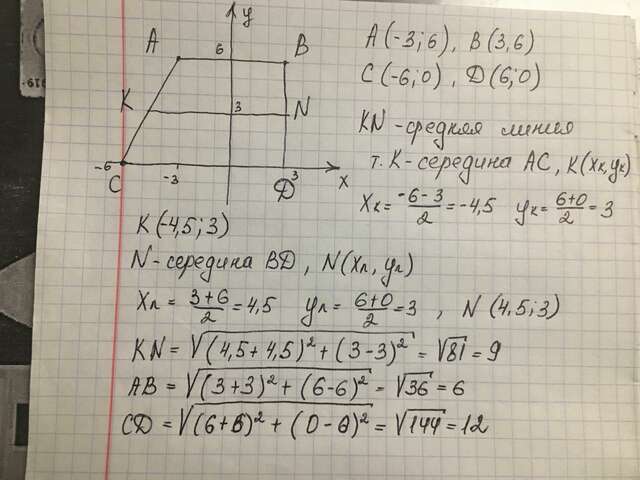 y
A
6
B
A(-3;6), B(3,6)
C(-6;0), D(6;0)
K
3
N
KN - средняя линия
т. K - середина AC, K(xк, yк)
-6
C
-3
D
3
x
Xк = -6-3/2 = -4,5 yк = 6+0/2 = 3
K(-4,5;3)
N - середина BD, N(xn, yn)
Xn = 3+6/2 = 4,5 yn = 6+0/2 = 3, N(4,5;3)
KN = √(4,5+4,5)² + (3-3)² = √81 = 9
AB = √(3+3)² + (6-6)² = √36 = 6
CD = √(6+6)² + (0-0)² = √144 = 12